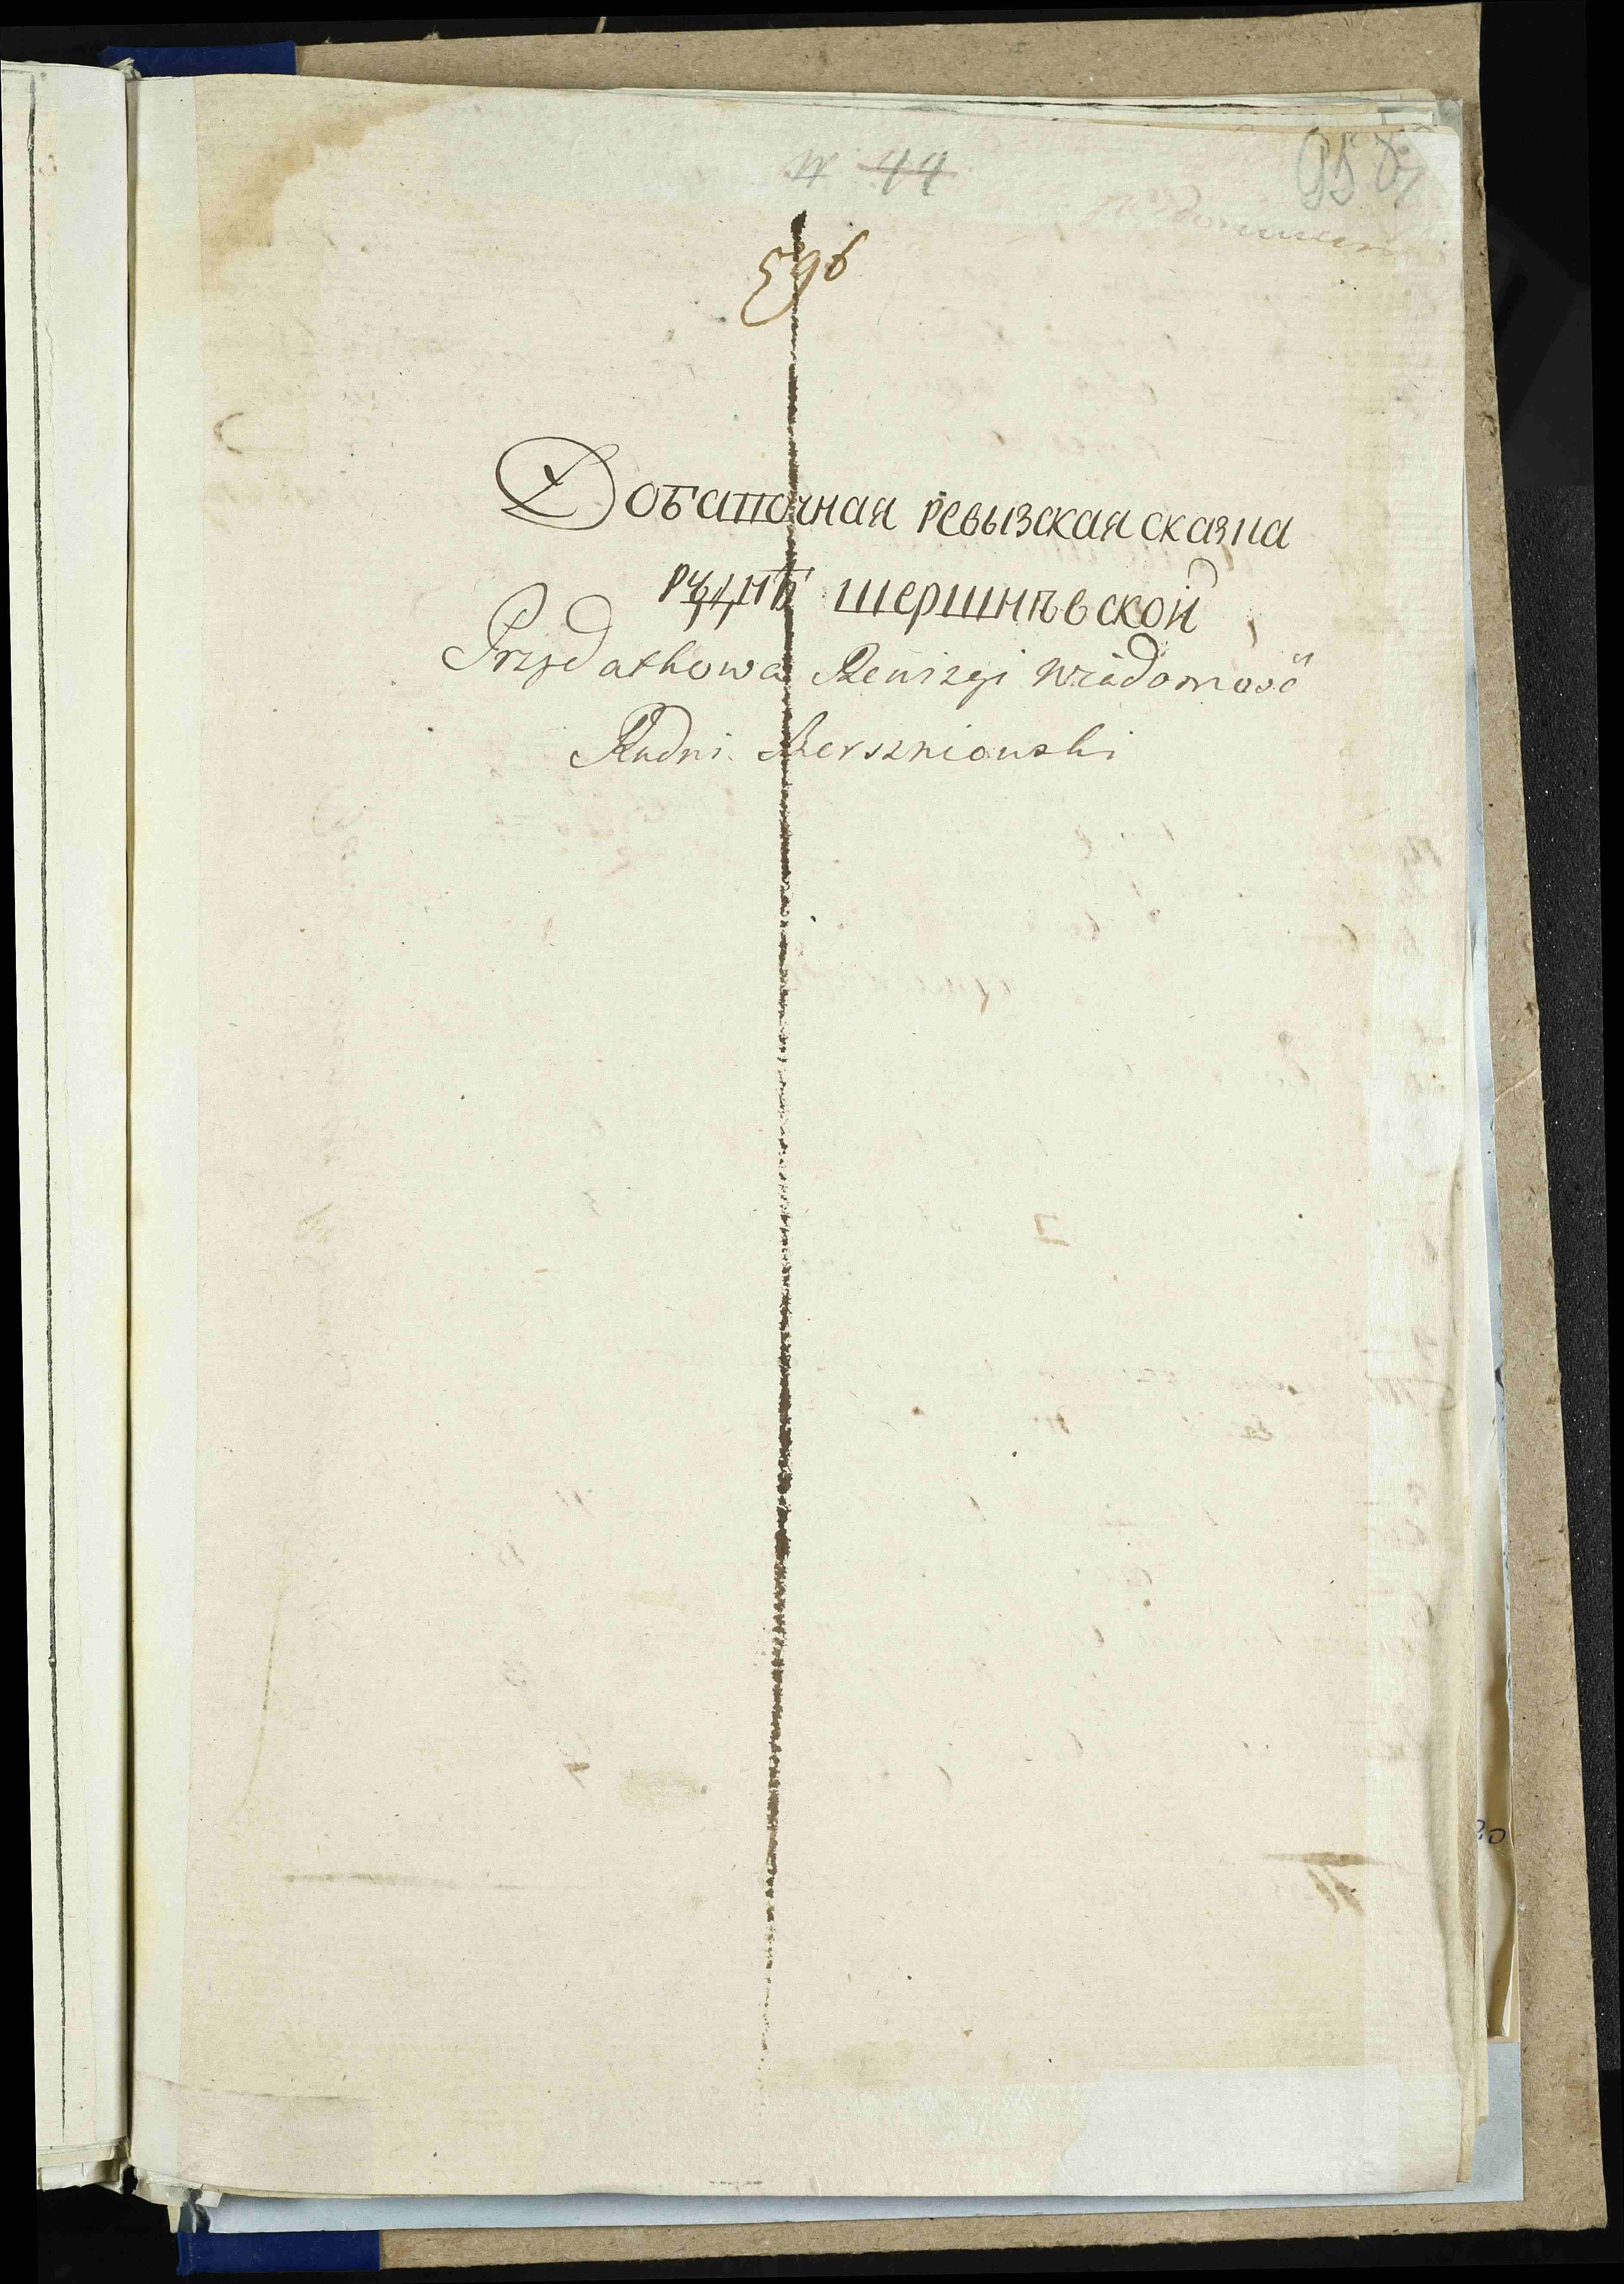 N 44
596
Добаточная ревызская сказка
руднѣ шершнѣвской
Przydatkowa Rewizyi Wiadomość
Rudni Szerszniowski